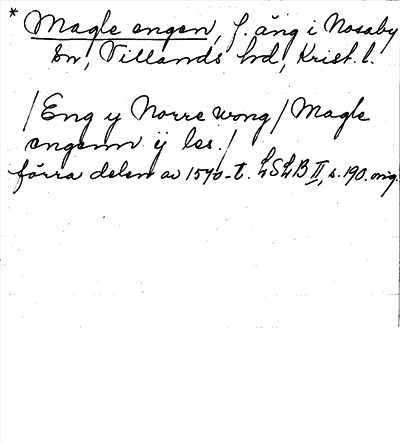 * Magle engen, f. äng i Nosaby
sn, Villands hd, Krist. l.
/Eng y Norre wong/Magle
engenn ij les./
förra delen av 1570-t. LSLB II, s. 190. orig.